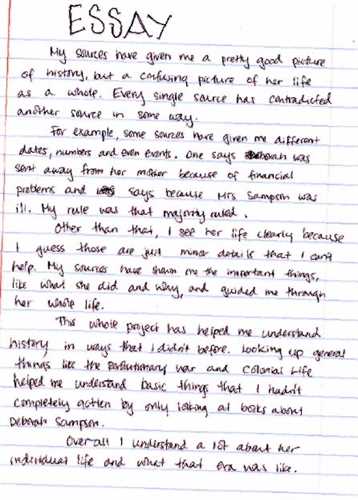 ESSAY
My sources have given me a pretty good picture
of history, but a confusing picture of her life
as a whole. Every single source has contradicted
another source in some way.
For example, some sources have given me different
dates, numbers and even events. One says Deborah was
sent away from her mother because of financial
problems and says because Mrs Sampson was
ill. My rule was that majority ruled.
Other than that, I see her life clearly because
I guess those are just minor details that I can't
help. My sources have shown me the important things,
like what she did and why, and guided me through
her whole life.
This whole project has helped me understand
history in ways that I didn't before. Looking up general
things like the Revolutionary war and Colonial Life
helped me understand basic things that I hadn't
completely gotten by only looking at books about
Deborah Sampson.
Overall I understand a lot about her
individual life and what that era was like.